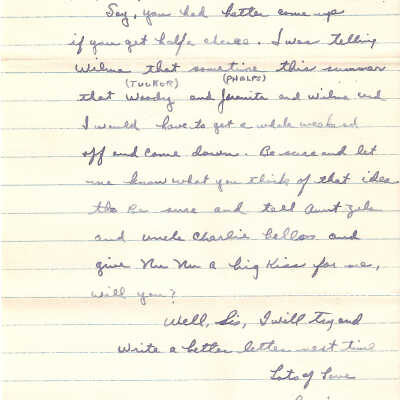 Say, you had better come up
if you get half a chance. I was telling
Wilma that sometime this summer
(TUCKER) (PHELPS)
that Woody and Juanita and Wilma and
I would have to get a whole weekend
off and come down. Be sure and let
me know what you think of that idea
Be sure and tell Aunt Zela
and uncle Charlie hellos and
give Nu Nu a big kiss for me,
will you?
Well, Sis, I will try and
write a better letter next time
Lots of Love